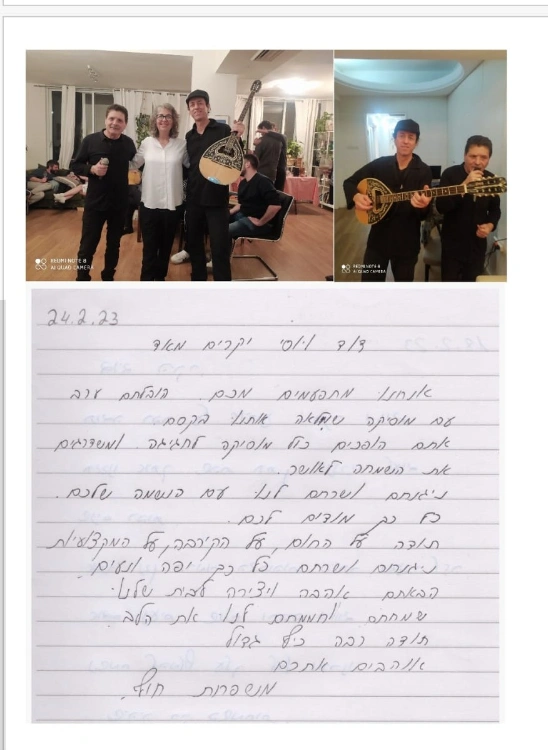 REDMI NOTE 8
AI QUAD CAMERA
REDMI NOTE 8
AI QUAD CAMERA
24.2.23
דוד ויוסי יקרים מאד
אנחנו מתפעמים מכם. הובלתם ערב
עם מוסיקה שמלאה אותנו בקסם
אתם הופכים כול מוסיקה לחגיגה ומשדרגים
את השמחה לאושר.
ניגנתם ושרתם לנו עם הנשמה שלכם.
כל כך מודים לכם.
תודה על החום, על הקירבה, על המקצועיות
ניגנתם ושרתם כל כך יפה ונעים.
הבאתם אהבה ויצירה לבית שלנו.
שמחתם וחממתם לנו את הלב
תודה רבה כיף גדול
אוהבים אתכם
משפחות